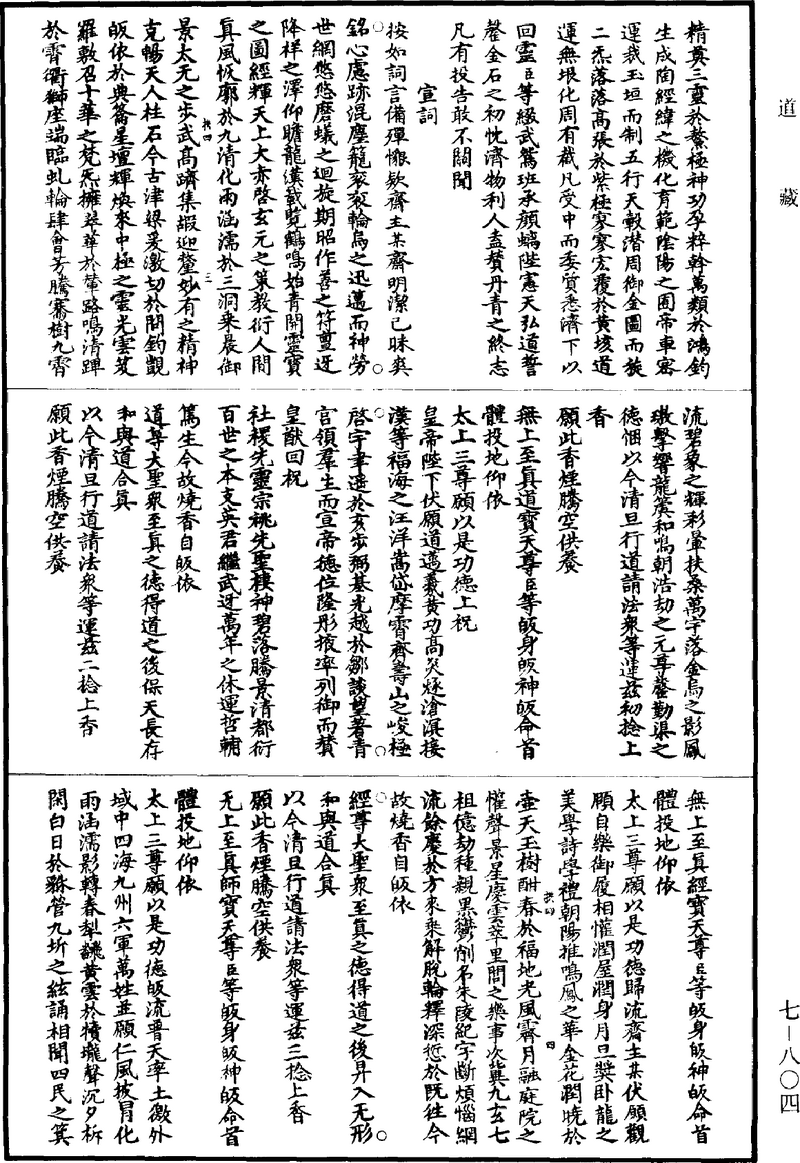 道藏
七—八〇四
精奠三靈於鰲極神功孕粹斡萬類於鴻鈞
生成陶經緯之機化育範陰陽之囿帝車密
運裁玉垣而制五行天轂潛周御金圖而旋
二炁落落高張於紫極寥寥宏覆於黃垓道
運無垠化周有截凡受中而委質悉濟下以
回靈臣等綴武鵷班承顏螭陛憲天弘道誓
罄金石之初忱濟物利人盍贊丹青之終志
凡有投告敢不關聞
宣詞
按如詞言備殫懇欵齋主某齋明潔己昧爽
銘心慮跡混塵籠衮衮輪烏之迅邁而神勞
世網悠悠磨蟻之迴旋期昭作善之符亶迓
降祥之澤仰瞻龍漢載覽鶴鳴始青開靈寶
之圖經輝天上大赤啓玄元之策教衍人間
眞風恢廓於九清化雨涵濡於三洞乘晨御
景太元之步武高躋集嘏迎釐妙有之精神
克暢天人柱石今古津梁爰激切於開鈞觀
皈依於典籥星壇輝煥來中極之雲光雲笈
羅敷召十華之梵炁擁翠華於輦路鳴清蹕
於霄衢獅座端臨虬輪肆會芳騰騫樹九霄
流碧象之輝彩暈扶桑萬宇落金烏之影鳳
璈擊響龍篪和鳴朝浩劫之元尊罄勤渠之
德悃以今清旦行道請法衆等運茲初捻上
香
願此香煙騰空供養
無上至眞道寶天尊臣等皈身皈神皈命首
體投地仰依
太上三尊願以是功德上祝
皇帝陛下伏願道邁羲黃功高炎燧滄溟接
漢等福海之汪洋嵩岱摩霄齊壽山之峻極
啓宇聿遵於亥步弼基光越於鄒談望著青
宮領羣生而宣帝德位隆彤掖率列御而贊
皇猷回祝
社稷先靈宗祧先聖棲神碧落騰景清都衍
百世之本支英君繼武迓萬年之休運哲輔
篤生今故燒香自皈依
道尊大聖衆至眞之德得道之後保天長存
和與道合眞
以今清旦行道請法衆等運茲二捻上香
願此香煙騰空供養
無上至眞經寶天尊臣等皈身皈神皈命首
體投地仰依
太上三尊願以是功德歸流齋主某伏願觀
願自樂御履相懽潤屋潤身月旦奬卧龍之
美學詩學禮朝陽推鳴鳳之華金花潤曉於
壺天玉樹酣春於福地光風霽月融庭院之
懽聲景星慶雲萃里閭之樂事次冀九玄七
祖億劫種親黑簿削名朱陵紀字斷煩惱網
流餘慶於方來乘解脫輪釋深愆於既往今
故燒香自皈依
經尊大聖衆至眞之德得道之後昇入无形
和與道合眞
以今清旦行道請法衆等運茲三捻上香
願此香煙騰空供養
无上至眞師寶天尊臣等皈身皈神皈命首
體投地仰依
太上三尊願以是功德皈流普天率土徼外
域中四海九州六軍萬姓並願仁風披冒化
雨涵濡影轉春犁饒黃雲於犢壠聲沉夕柝
閑白日於豵管九圻之絃誦相聞四民之箕